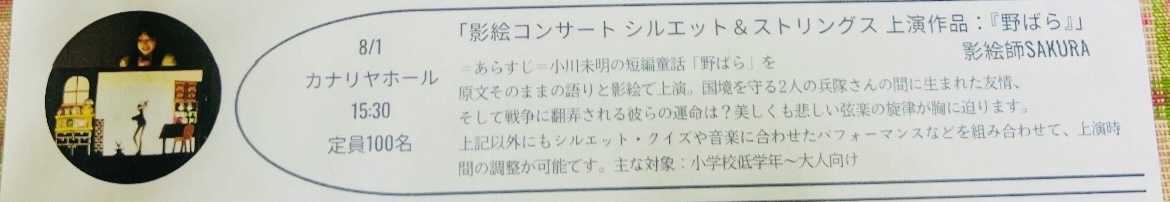 8/1
カナリヤホール
15:30
定員100名
「影絵コンサート シルエット＆ストリングス 上演作品：『野ばら』」
影絵師SAKURA
＝あらすじ＝小川未明の短編童話「野ばら」を
原文そのままの語りと影絵で上演。国境を守る2人の兵隊さんの間に生まれた友情、
そして戦争に翻弄される彼らの運命は？美しくも悲しい弦楽の旋律が胸に迫ります。
上記以外にもシルエット・クイズや音楽に合わせたパフォーマンスなどを組み合わせて、上演時
間の調整が可能です。主な対象：小学校低学年～大人向け